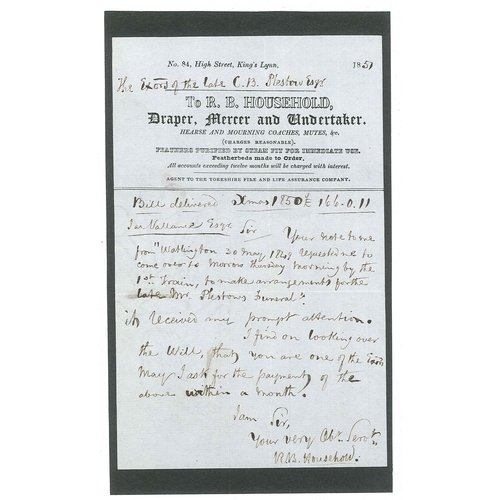 No. 84, High Street, King's Lynn. 1851
The Exors of the late C. B. Plestow Esqr
To R. B. HOUSEHOLD,
Draper, Mercer and Undertaker.
HEARSE AND MOURNING COACHES, MUTES, &c.
(CHARGES REASONABLE).
FEATHERS PURIFIED BY STEAM FIT FOR IMMEDIATE USE.
Featherbeds made to Order,
All accounts exceeding twelve months will be charged with interest.
AGENT TO THE YORKSHIRE FIRE AND LIFE ASSURANCE COMPANY.
Bill delivered Xmas 1850 £ 166.0.11
Jas Vallance Esqr Sir Your note to me
from "Watlington 30 May 1849 requested me to
come over to morrow Thursday morning by the
1st Train, to make arrangements for the
late Mr. Plestows Funeral".
it received my prompt attention.
I find on looking over
the Will, that you are one of the Exors
May I ask for the payment of the
above within a month.
I am Sir,
Your very Obt Servt
R.B. Household.